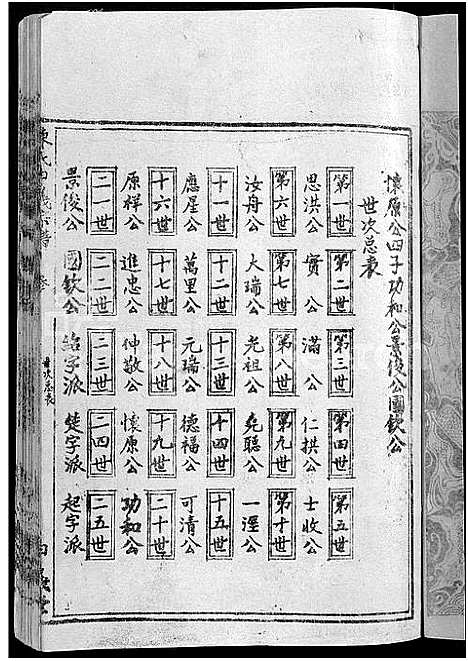 懷原公四子功和公景俊公國欽公
世次总表
第一世 第二世 第三世 第四世 第五世
思洪公 實公 滿公 仁拱公 士收公
第六世 第七世 第八世 第九世 第十世
汝舟公 大瑞公 光祖公 堯聰公 一涇公
十一世 十二世 十三世 十四世 十五世
應星公 萬里公 元瑞公 德福公 可清公
十六世 十七世 十八世 十九世 二十世
原祥公 進忠公 仲敬公 懷原公 功和公
二一世 二二世 二三世 二四世 二五世
景俊公 國欽公 字派 楚字派 起字派
世次总表